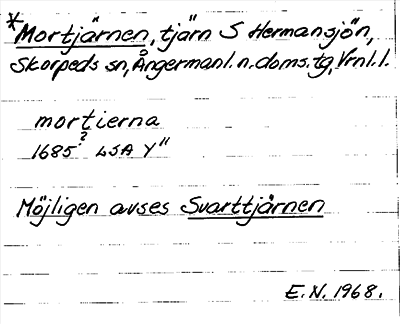 *Mortjärnen, tjärn S Hermansjön,
Skorpeds sn, Ångermanl. n. doms. tg, Vrnl. l.
mortierna
?
1685. LSA Y"
Möjligen avses Svarttjärnen
E.N. 1968.